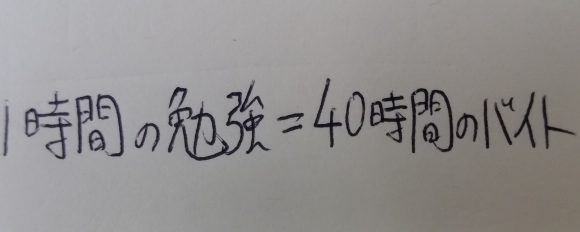 1時間の勉強=40時間のバイト